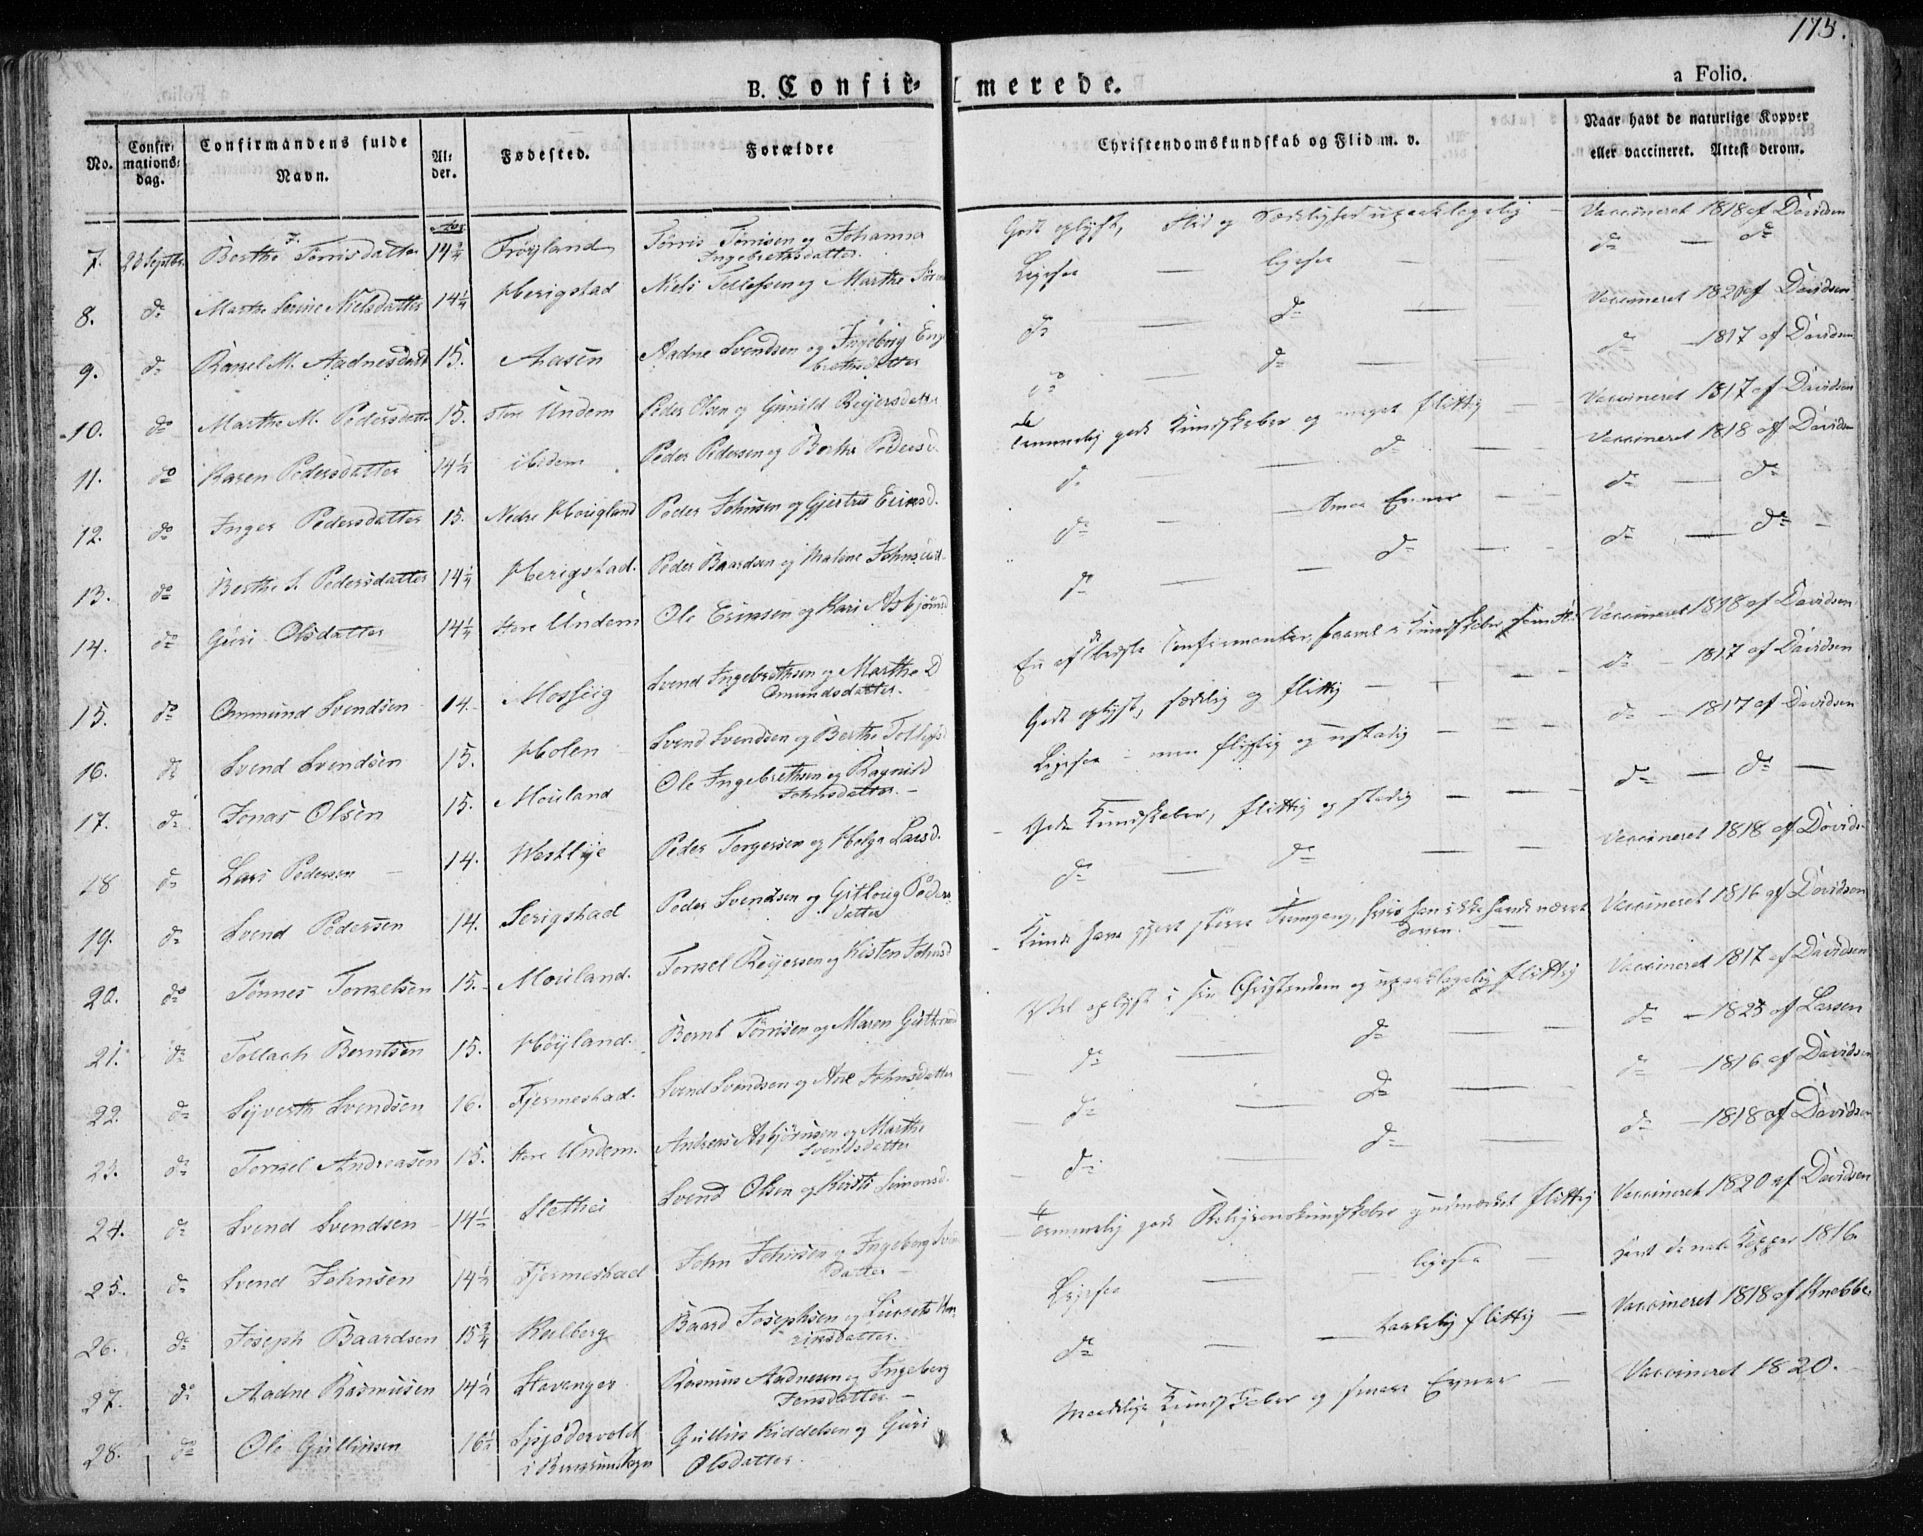 175.
B. Confir- merede.
a Folio.
No. Confirmations-dag. Confirmandens fulde Navn. Alder. Fødested. Forældre Christendomskundskab og Flid m. v. Naar havt de naturlige Kopper eller vaccineret. Attest derom.
7. 23 Septbr. Berthe T. Tørrisdatter 14¾ Frøyland Tørris Tørrisen og Johanna Ingebrethsdatter. Godt oplyst, Flid og Sædelighed upaaklagelig – Vaccineret 1818 af Davidsen
8. do Marthe Serine Nielsdatter 14¼ Herigstad Niels Tollefsen og Marthe Ligesaa — ligesaa — do — do
9. do Karel M. Aadnesdatt 15. Aasen Aadne Svendsen og Ingeborg Engebrethsdatter do — do — Vaccineret 1820 af Davidsen
10. do Marthe M. Pedersdatter 15. store Undem Peder Olsen og Gunild Reyersdatter do — do — do — 1817 af Davidsen
11. do Karen Pedersdatter 14½ ibidem Peder Pedersen og Berthe Pedersd. Temmelig gode Kundskaber og meget flittig — Vaccineret 1817 af Davidsen
12. do Inger Pedersdatter 15. Nedre Hougland Peder Johnsen og Gjertrud Erinsd. do — do — Vaccineret 1818 af Davidsen
13. do Berthe S. Pedersdatter 14¼ Herigstad. Peder Baardsen og Malene Johnsdatt do — Smaa Evner — do — do
14. do Guri Olsdatter 14¼ store Undem Ole Erinsen og Kari Asbjørnsd do — do — do — do
15. do Ommund Svendsen 14. Mossig Svend Ingebrethsen og Marthe Omundsdatter. En af de bedste Confirmanter saavel i Kundskaber som Flid Vaccineret 1818 af Davidsen
16. do Svend Svendsen 15. Holen Svend Svendsen og Berthe Tollefsd Godt oplyst, sædelig og flittig — do — 1817 af Davidsen
17. do Jonas Olsen 15. Mouland Ole Ingebrethsen og Ragnild Johnsdatter. – Ligesaa – men og ustadig — do — 1817 af Davidsen
18 do Lars Pedersen 14. Westlye Peder Torgersen og Helga Larsd. Gode Kundskaber, flittig og stadig — do — do —
19. do Svend Pedersen 14. Serigstad Peder Svendsen og Gitlaug Pedersdatter do — do — Vaccineret 1818 af Davids
20. do Tønnes Torkelsen 15. Mouland. Torkel Reyersen og Kisten Johnsd Kunde have gjort større Fremgang, hvis han ikke havde været doven. Vaccineret 1816 af Davidsen
21. do Tollach Berntsen 15. Høyland. Bernt Tørrisen og Maren Vel oplyst i sin Christendom og upaaklagelig flittig Vaccineret 1817 af Davidsen
22. do Syverth Svendsen 16. Fjermestad. Svend Svendsen og Ane Johnsdatter do — do — do — 1825 af Larsen
23. do Torkel Andreasen 15. store Undem. Andreas Asbjørnsen og Marthe Svendsdatter do — do — do — 1816 af Davidsen
24. do Svend Svendsen 14½ Stethei Svend Olsen og Kirsti Simonsd. do — do — do — 1818 af Davidsen
25. do Svend Johnsen 14½ Fjermestad John Johnsen og Ingeborg datter – Temmelig gode Religionskundskaber og udmærket flittig Vaccineret 1820 af Davidsen
26. do Joseph Baardsen 15¾ Kalberg Baard Josephsen og Henriksdatter. Ligesaa — ligesaa — havt de nat. Kopper 1816
27. do Aadne Rasmusen 14½ Stavanger Rasmus Aadnesen og Ingeborg Jensdatter – do — taalelig flittig — Vaccineret 1818 af Knebbe
28. do Ole Gullusen 16½ Guri Olsdatter. Maadelige Kundskaber og smaae Evner — Vaccineret 1820.